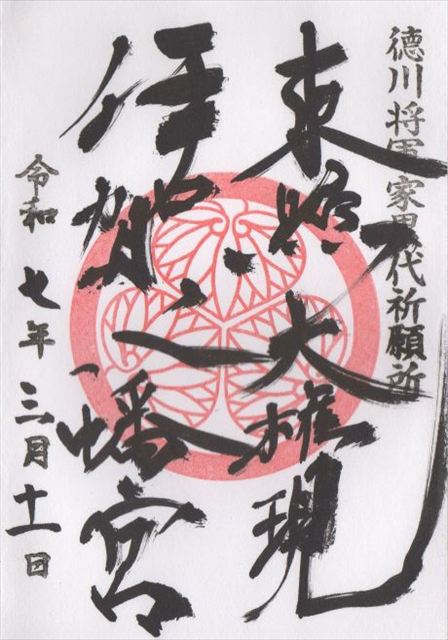 徳川将軍家累代祈願所
東照大権現
伊賀八幡宮
令和七年三月十一日